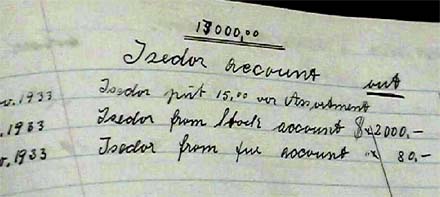 13000,00
Isedor account out
v. 1933 Isedor put 15,00 Assortment
. 1933 Isedor from Stock account $ 2000,-
v. 1933 Isedor from fur account " 80,-